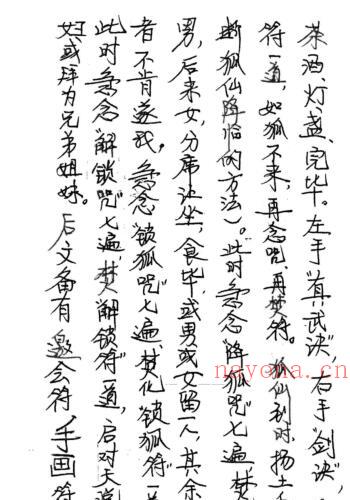 茶酒、灯、盏、完毕。左手“真武诀”,右手“剑诀”,
符一道,如狐不来,再念咒、再焚符。狐仙到时,扬土
断狐仙降临的方法)。此时急念“降狐咒”七遍,焚
男,后来女,分席让坐,食毕,或男或女留一人,其余
者不肯遂我,急念“锁狐咒”七遍、焚化“锁狐符”一
此时急念“解锁咒”七遍,焚“解锁符”一道,启对天
或拜为兄弟姐妹。后文备有邀会符,手画符
nayona.cn